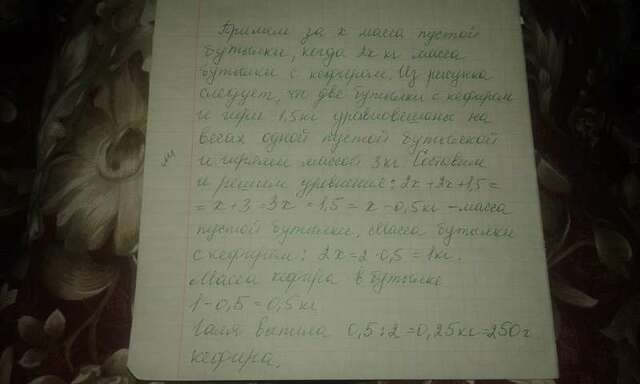 Примем за x масса пустой
бутылки, когда 2x кг масса
бутылки с кефиром. Из рисунка
следует, что две бутылки с кефиром
и гири 1,5 кг уравновешаны на
весах одной пустой бутылкой
и гирями массой 3 кг. Составим
и решим уравнение: 2x + 2x + 1,5 =
= x + 3 = 3x = 1,5 = x - 0,5 кг - масса
пустой бутылки. Масса бутылки
с кефиром: 2x = 2 · 0,5 = 1 кг.
Масса кефира в бутылке
1 - 0,5 = 0,5 кг
Галя выпила 0,5 : 2 = 0,25 кг = 250 г
кефира.